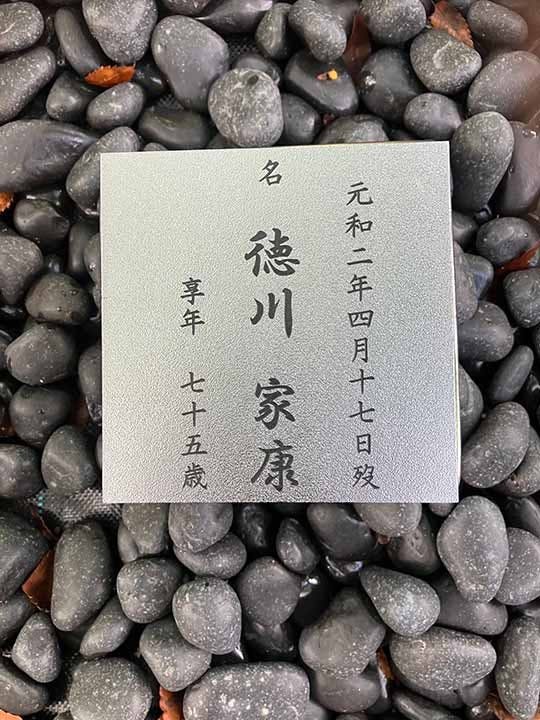 元和二年四月十七日歿
名 徳川 家康
享年 七十五歳